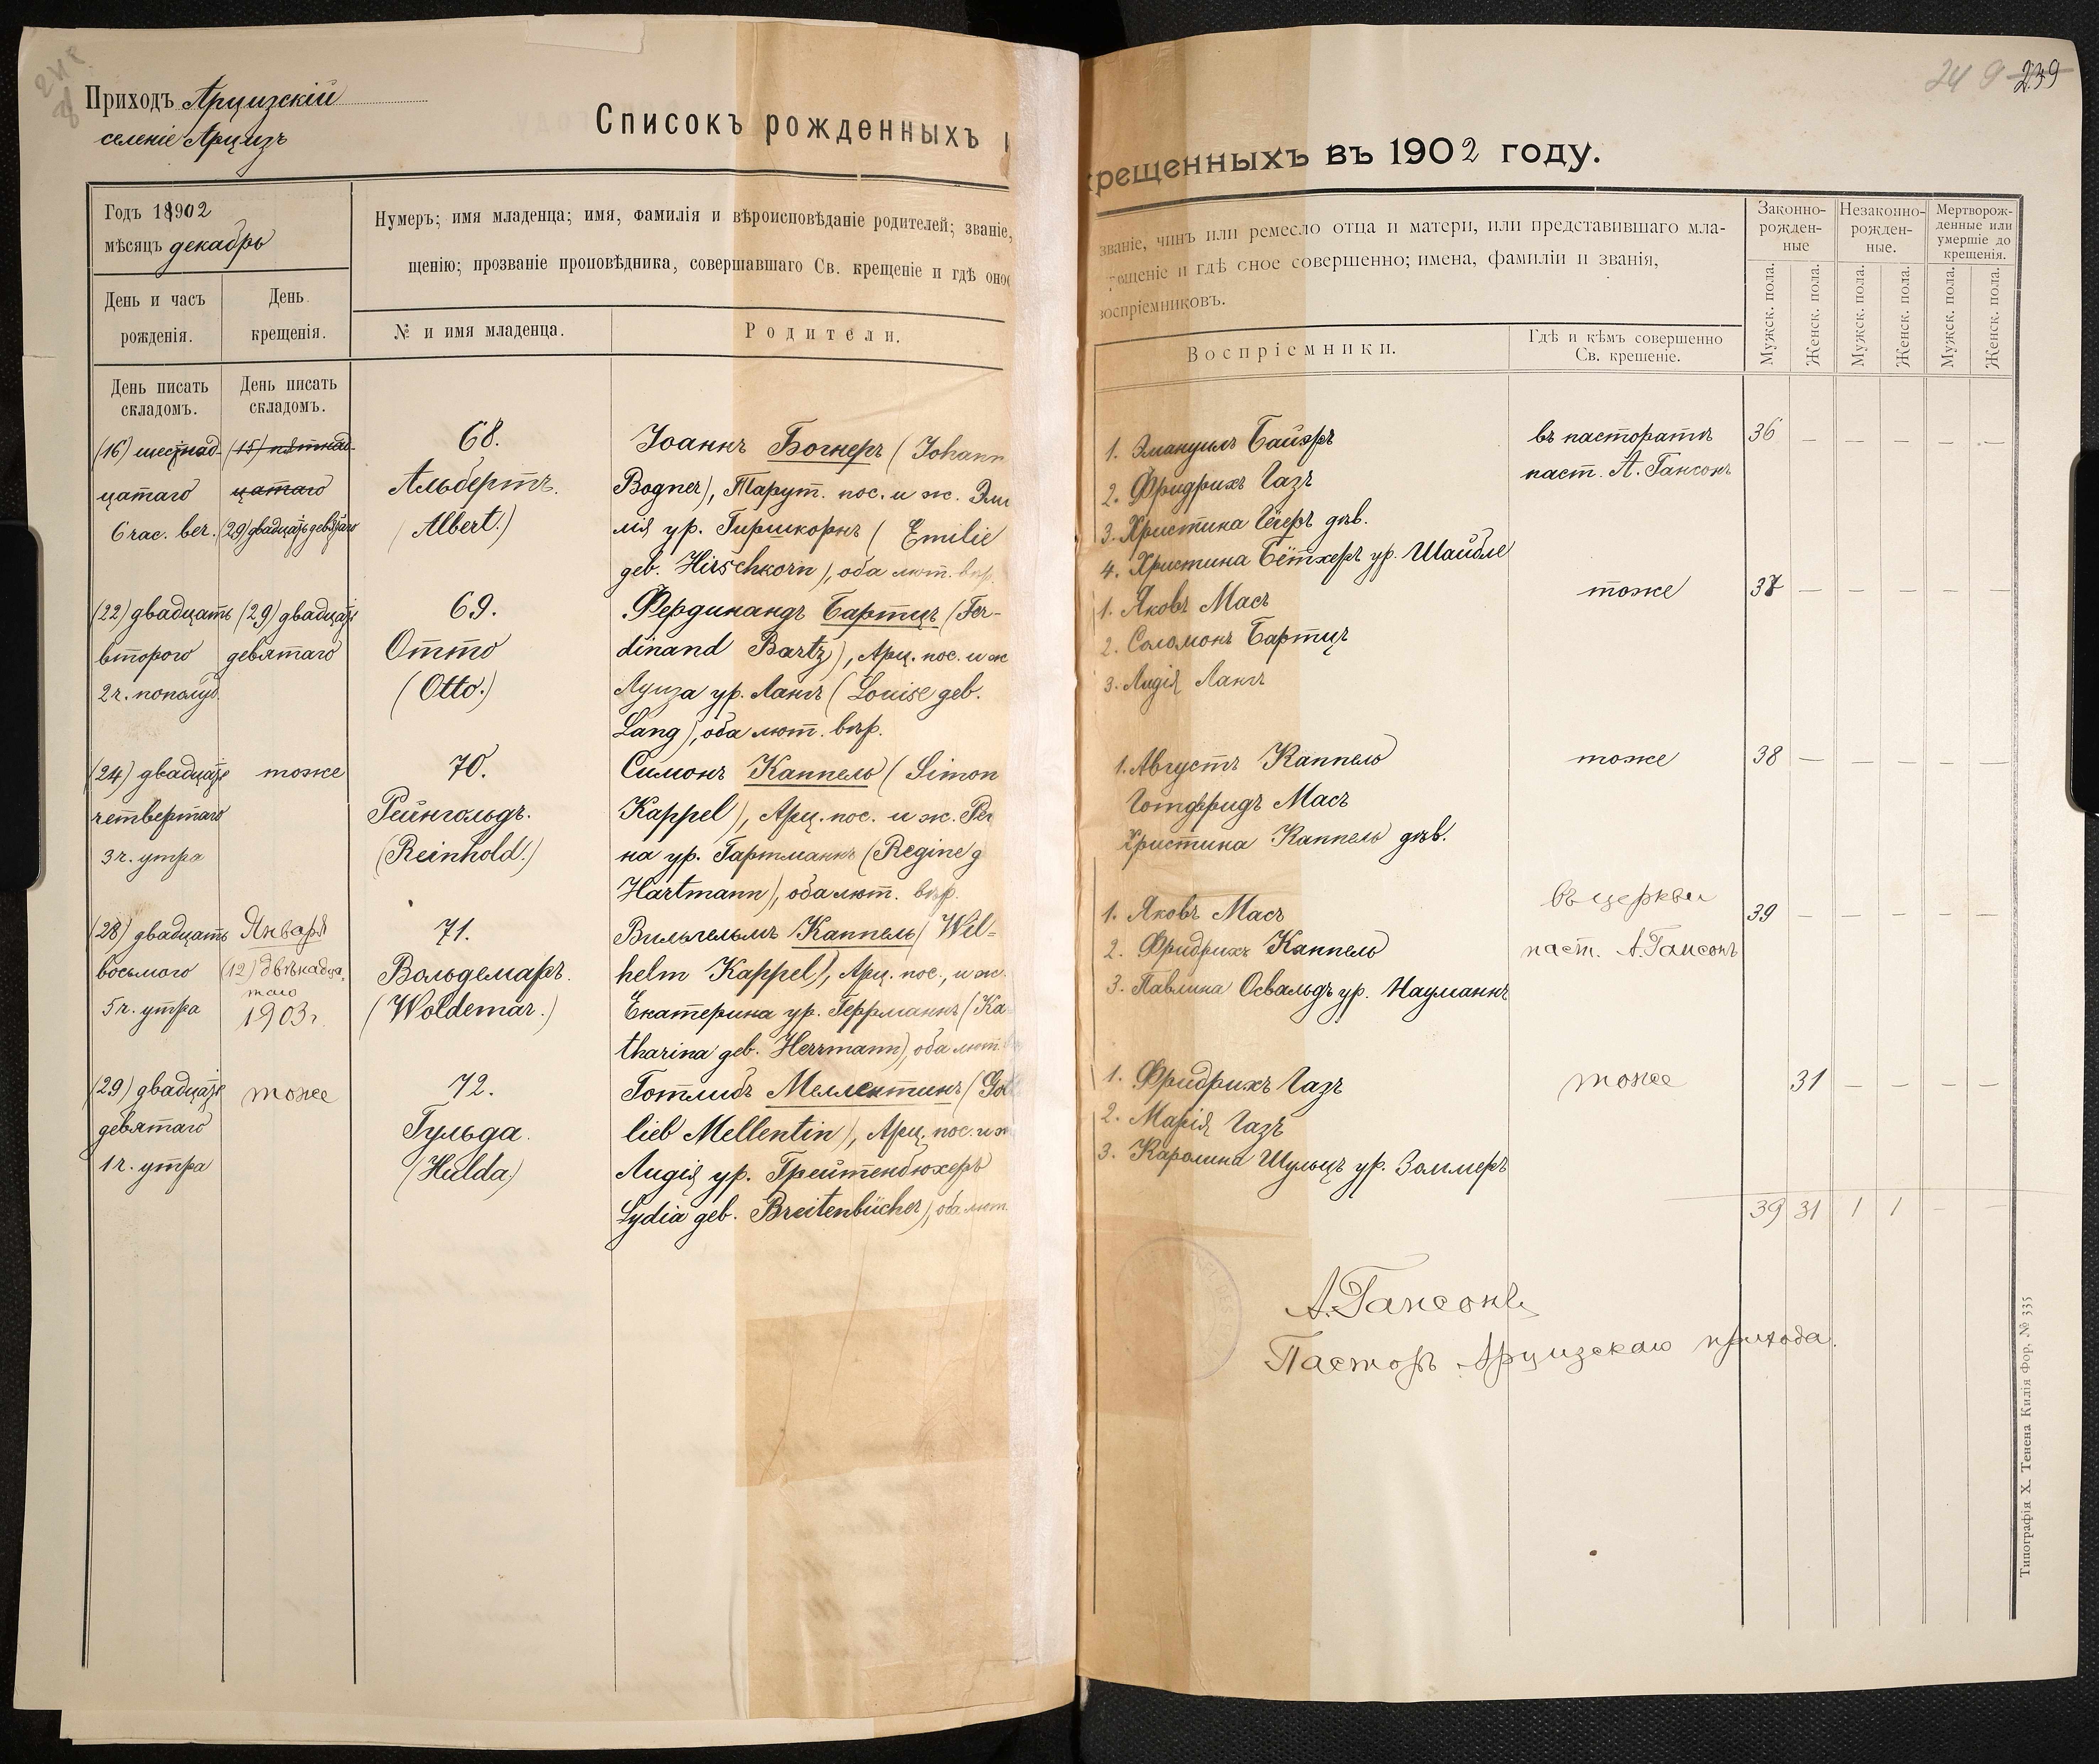 Приходъ Арцизскій
селеніе Арцизъ
Списокъ рожденныхъ
Годъ 18902
мѣсяцъ декабрь
Нумеръ; имя младенца; имя, фамилія и вѣроисповѣданіе родителей; званіе,
щенію; прозваніе проповѣдника, совершавшаго Св. крещеніе и гдѣ оное
День и часъ
рожденія.
День
крещенія.
№ и имя младенца.
Родители.
День писать
складомъ.
День писать
складомъ.
(16) шестнад-
цатаго
6 час. веч.
(15) пятнад-
цатаго
(29) двадцать девятаго
68.
Альбертъ.
(Albert.)
Іоаннъ Богнеръ (Johann
Bogner), Тарут. пос. и ж. Эми
лія ур. Гиршкорнъ (Emilie
geb. Hirschkorn), оба лют. вѣр.
(22) двадцать
второго
2 ч. пополуд.
(29) двадцать
девятаго
69.
Отто
(Otto.)
Фердинандъ Бартцъ (Fer-
dinand Bartz), Арц. пос. и ж
Луиза ур. Лангъ (Louise geb.
Lang), оба лют. вѣр.
(24) двадцать
четвертаго
3 ч. утра
тоже
70.
Рейнгольдъ.
(Reinhold.)
Симонъ Каппель (Simon
Kappel), Арц. пос. и ж. Рег
на ур. Гартманнъ (Regine g
Hartmann), оба лют. вѣр.
(28) двадцать
восьмого
5 ч. утра
Января
(12) двѣнадца-
таго
1903 г.
71.
Вольдемаръ.
(Woldemar.)
Вильгельмъ Каппель (Wil-
helm Kappel), Арц. пос., и ж.
Екатерина ур. Геррманнъ (Ka-
tharina geb. Herrmann), оба лют.
(29) двадцать
девятаго
1 ч. утра
тоже
72.
Гульда.
(Hulda)
Готлибъ Меллентинъ (Got
lieb Mellentin), Арц. пос. и ж
Лидія ур. Грейтенбюхеръ
Lydia geb. Breitenbücher), оба лют.
249 239
крещенныхъ въ 1902 году.
званіе, чинъ или ремесло отца и матери, или представившаго мла-
крещеніе и гдѣ оное совершенно; имена, фамиліи и званія,
воспріемниковъ.
Воспріемники.
Гдѣ и кѣмъ совершенно
Св. крещеніе.
Законно-
рожден-
ные
Незаконно-
рожден-
ные.
Мертворож-
денные или
умершіе до
крещенія.
Мужск. пола.
Женск. пола.
Мужск. пола.
Женск. пола.
Мужск. пола.
Женск. пола.
1. Эмануилъ Байэръ
2. Фридрихъ Газъ
3. Христина Гёгеръ дѣв.
4. Христина Бётхеръ ур. Шайбле
въ пасторатѣ
паст. А. Гансонъ
36 — — — — —
1. Яковъ Масъ
2. Соломонъ Бартцъ
3. Лидія Лангъ
тоже
37 — — — — —
1. Августъ Каппель
Готфридъ Масъ
Христина Каппель дѣв.
тоже
38 — — — — —
1. Яковъ Масъ
2. Фридрихъ Каппель
3. Павлина Освальдъ ур. Науманнъ
въ церкви
паст. А. Гансонъ
39 — — — — —
1. Фридрихъ Газъ
2. Марія Газъ
3. Каролина Шульцъ ур. Золмеръ
тоже
31 — — — —
39 31 1 1 — —
А. Гансонъ
Пасторъ Арцизскаго прихода.
Типографія Х. Тенена Килія Фор. № 335